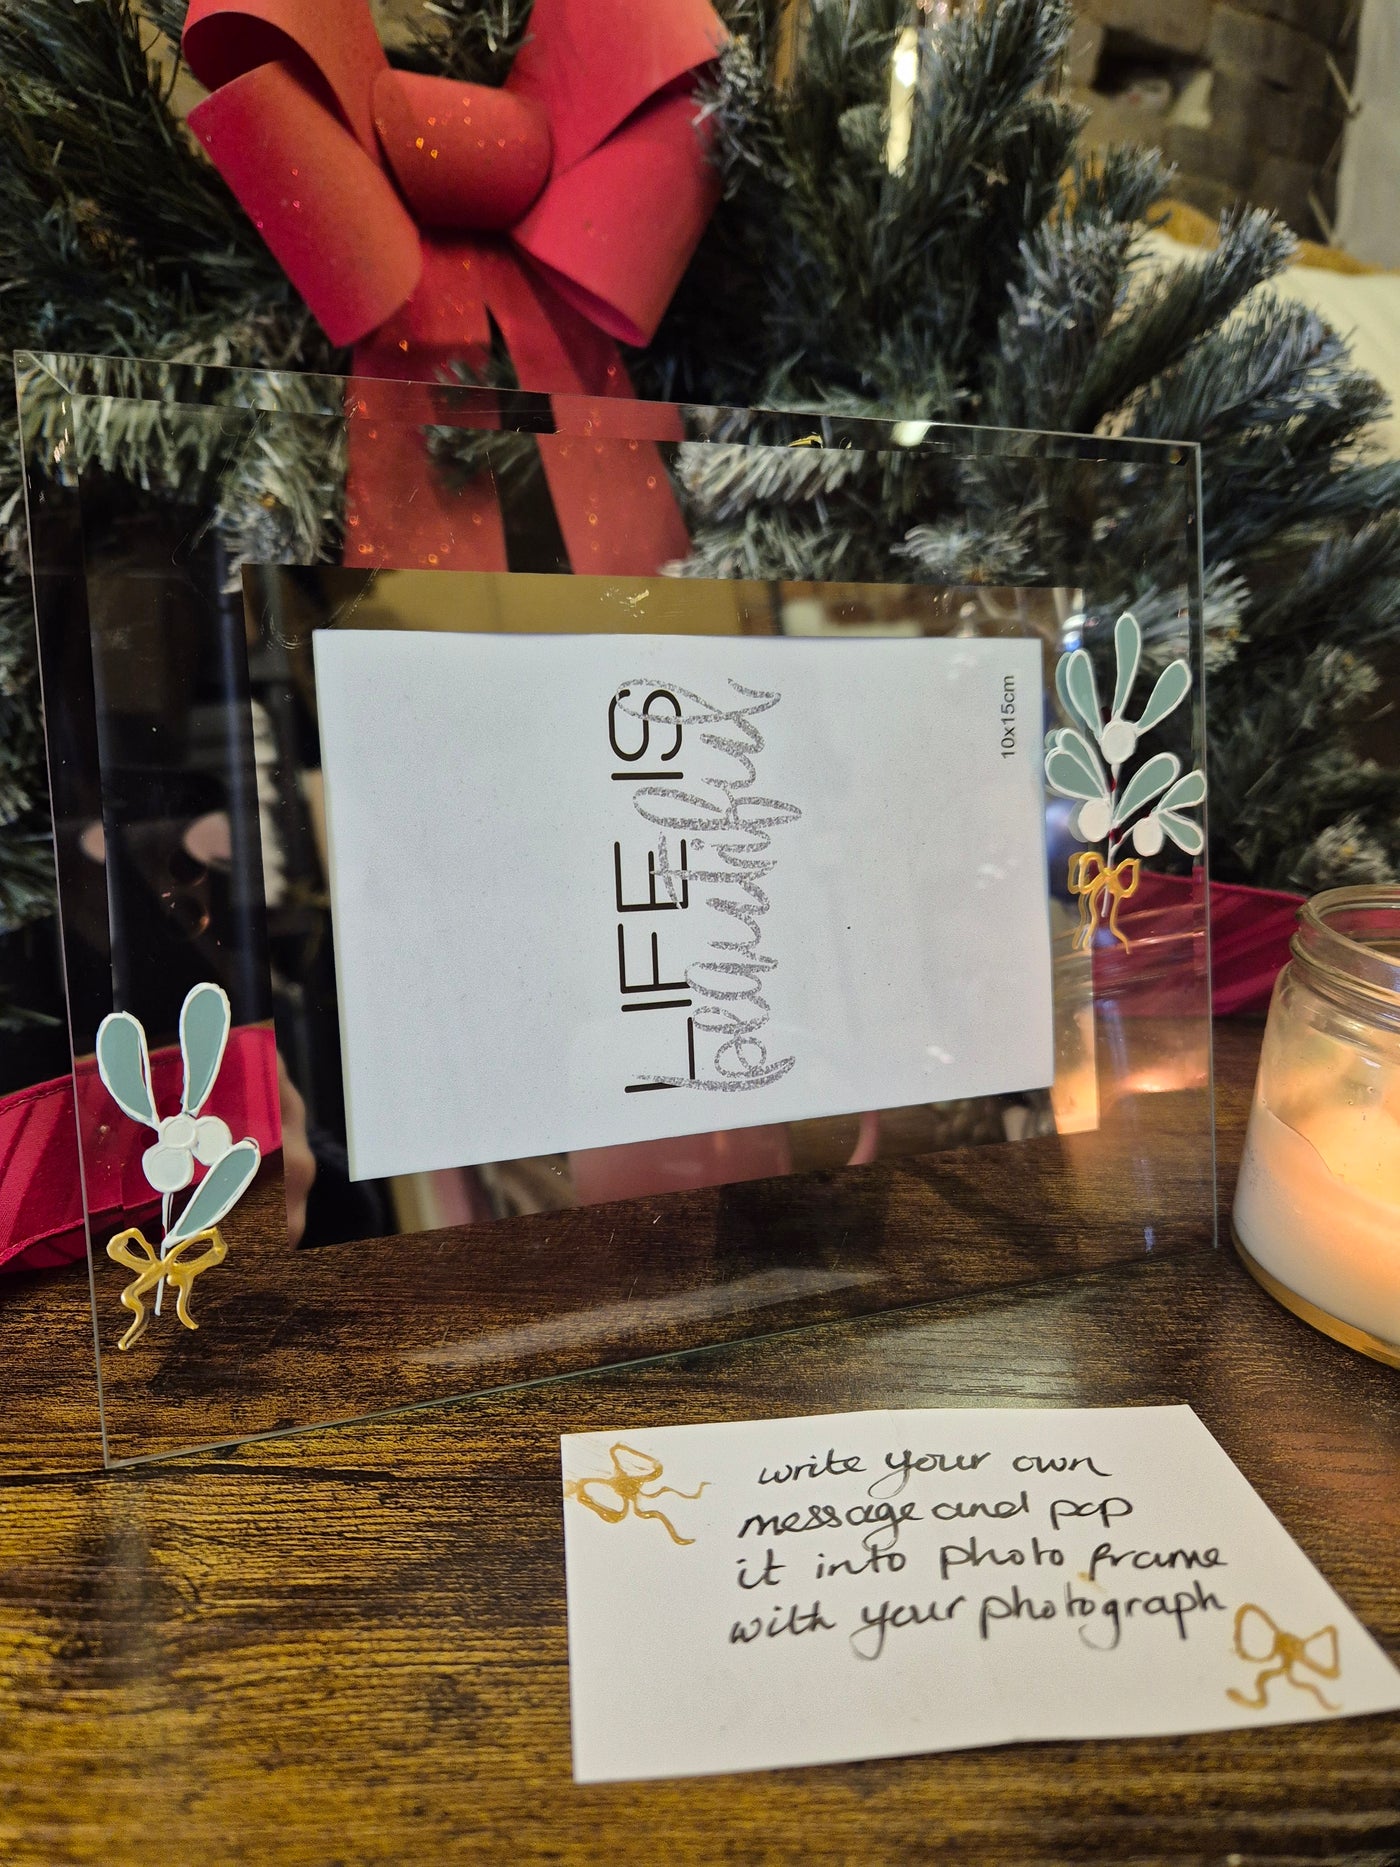 LIFE IS
beautiful
10x15cm
write your own
message and pop
it into photo frame
with your photograph